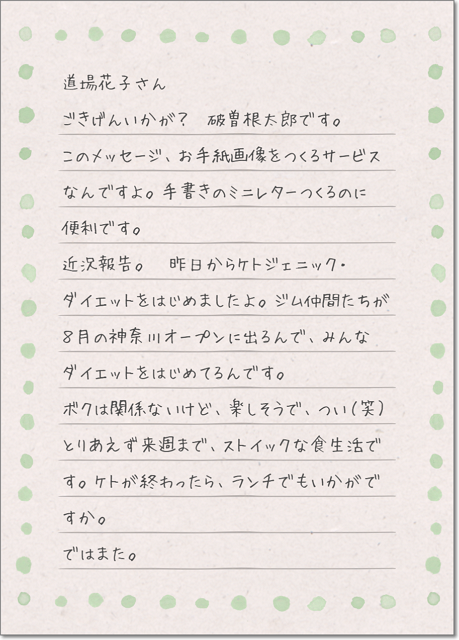 道場花子さん
ごきげんいかが？　破曽根太郎です。
このメッセージ、お手紙画像をつくるサービス
なんですよ。手書きのミニレターつくるのに
便利です。
近況報告。　昨日からケトジェニック・
ダイエットをはじめましたよ。ジム仲間たちが
8月の神奈川オープンに出るんで、みんな
ダイエットをはじめてるんです。
ボクは関係ないけど、楽しそうで、つい(笑)
とりあえず来週まで、ストイックな食生活で
す。ケトが終わったら、ランチでもいかがで
すか。
ではまた。